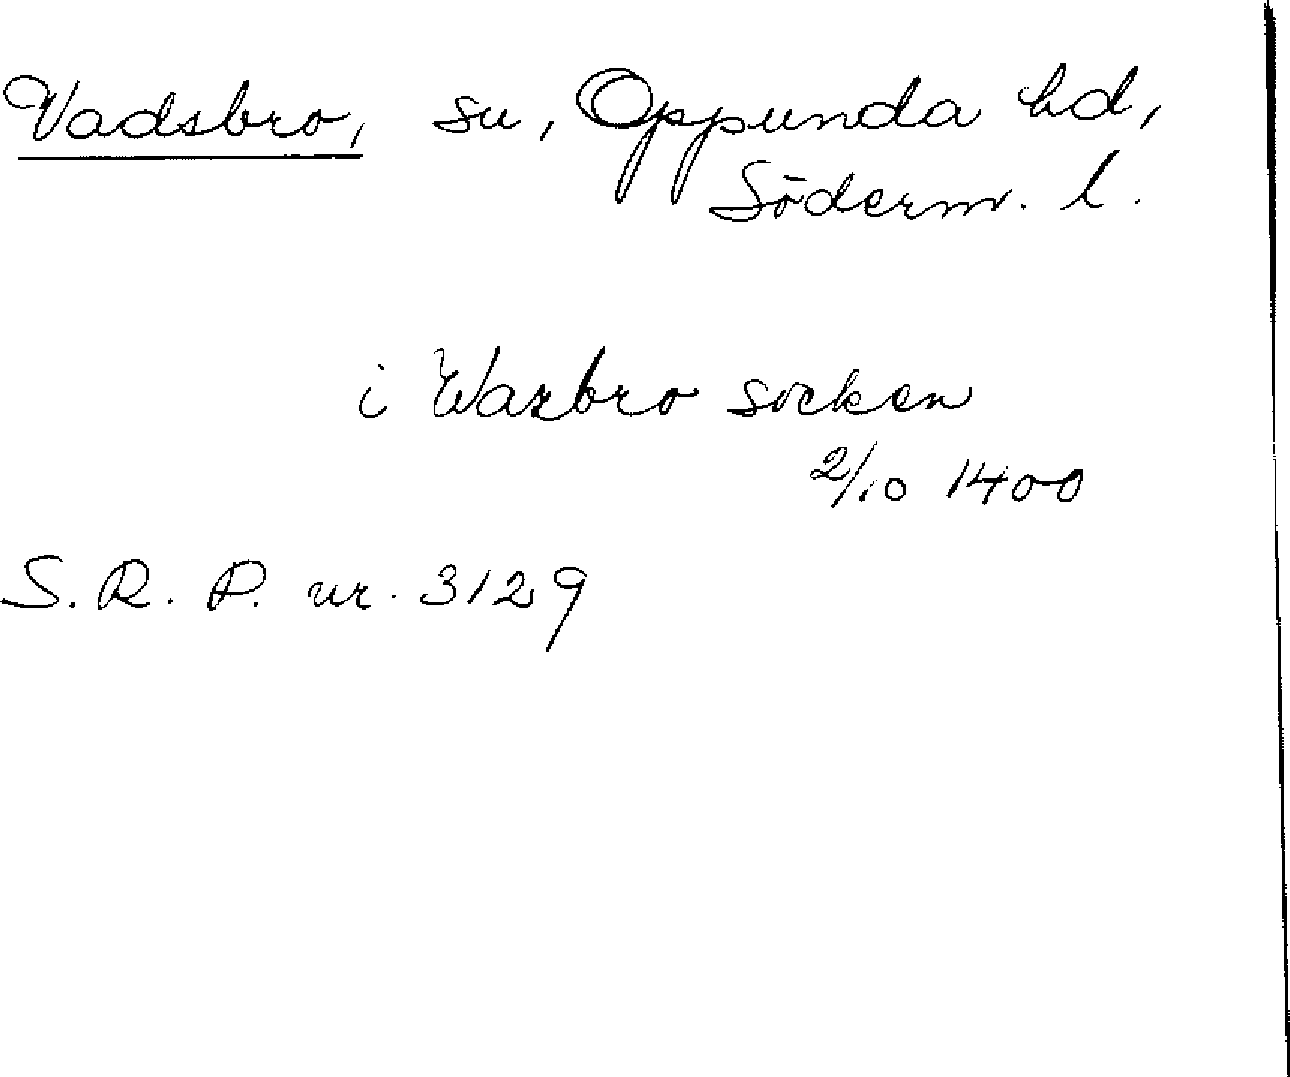 Vadsbro, sn, Oppunda hd,
Söderm. l.
i Wazbro socken
2/10 1400
S. R. P. nr. 3129